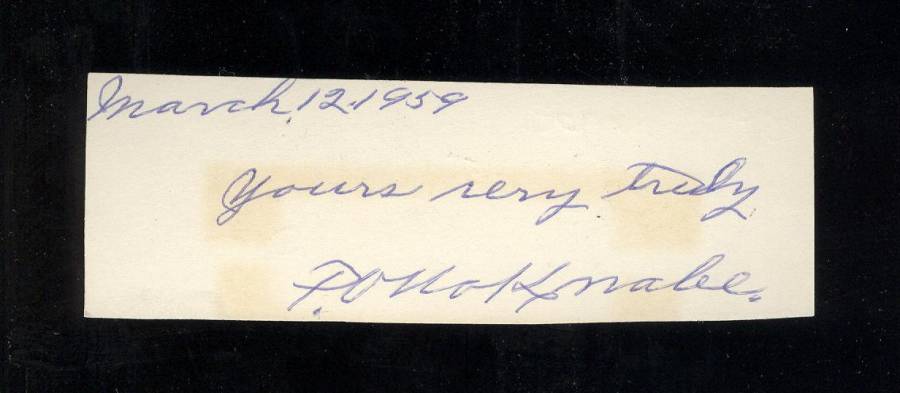 March 12.1959
Yours very truly
F. Otto Knabe.